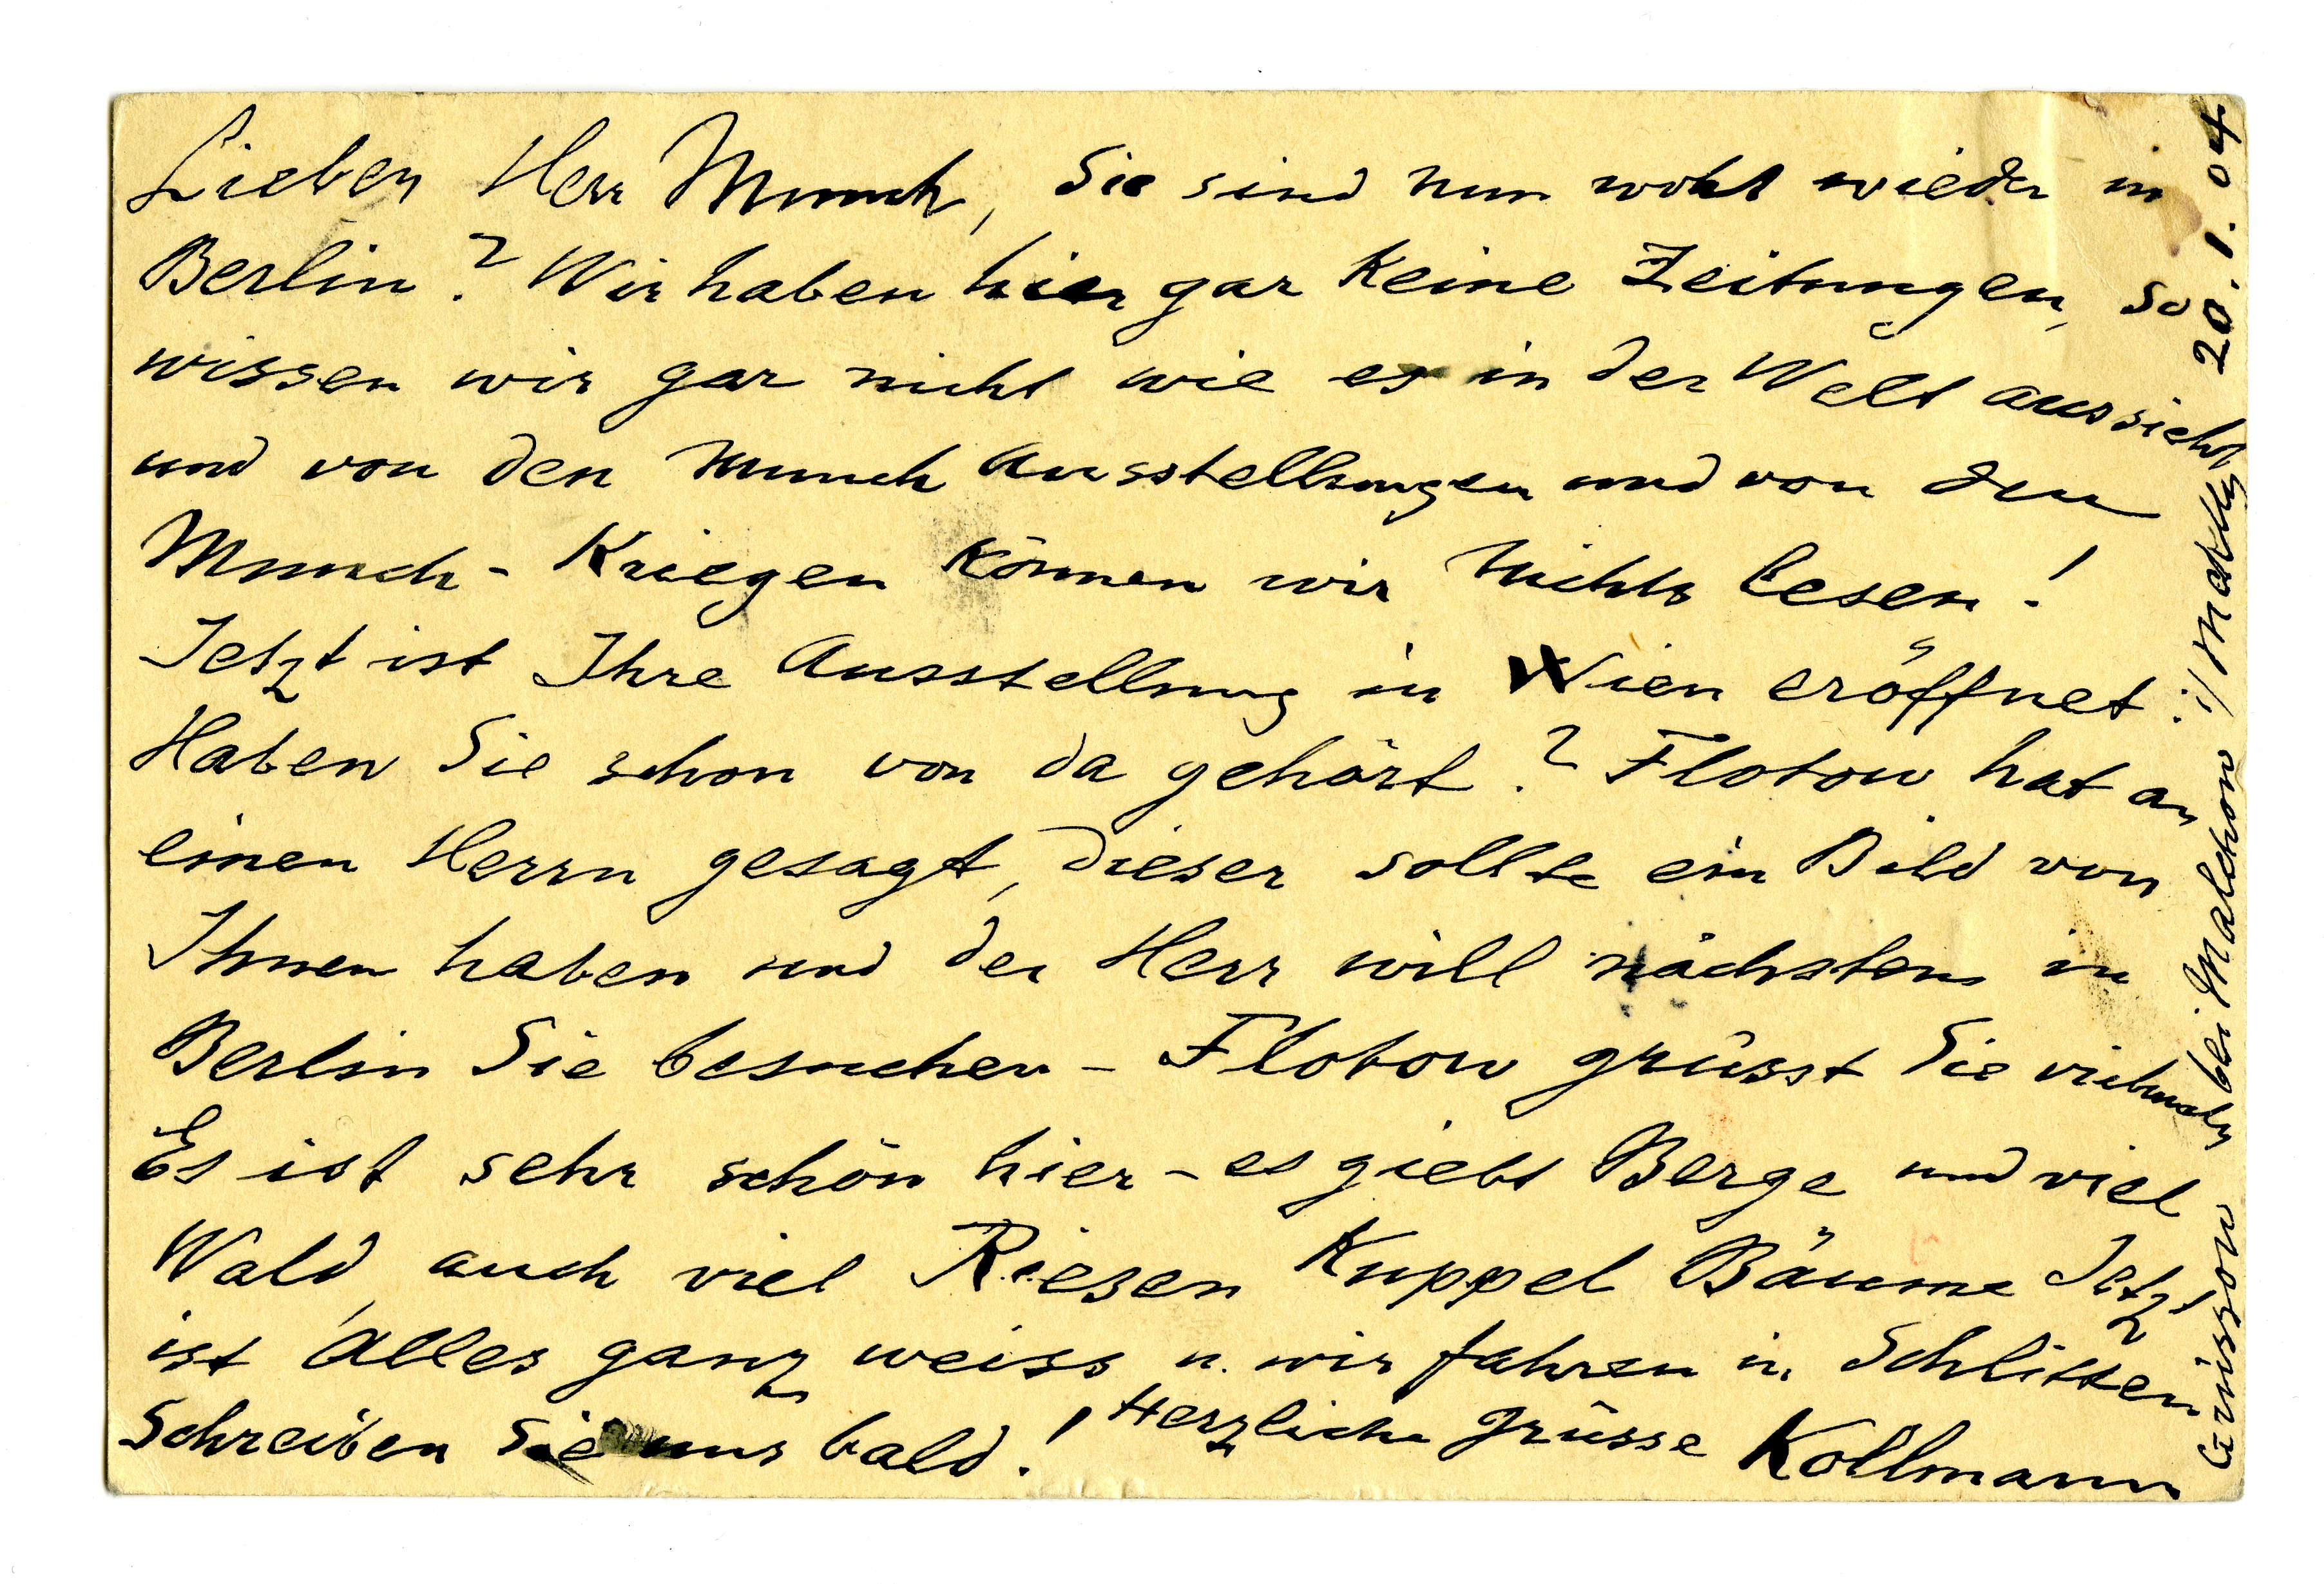 Lieber Herr Munch, Sie sind nun wohl wieder in
Berlin? Wir haben hier gar keine Zeitungen, so
wissen wir gar nicht wie es in der Welt aussieht
und von den Munch Ausstellungen und von den
Munch-Kriegen können wir nichts lesen!
Jetzt ist Ihre Ausstellung in Wien eröffnet.
Haben Sie schon von da gehört? Flotow hat an
einen Herrn gesagt, dieser sollte ein Bild von
Ihnen haben und der Herr will nächstens in
Berlin Sie besuchen - Flotow grüsst Sie vielmals
Es ist sehr schön hier - es giebt Berge und viel
Wald, auch viel Riesen Kuppel Bäume Jetzt
ist Alles ganz weiss u. wir fahren in Schlitten
Schreiben Sie uns bald! Herzliche Grüsse Kollmann
bei Malchow i/ Mecklbg 20.1.04